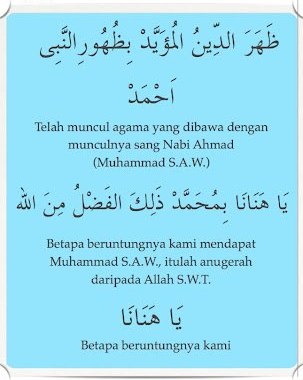 ظَهَرَ الدِّينُ الْمُؤَيَّدْ بِظُهُورِالنَّبِى
اَحْمَدْ
Telah muncul agama yang dibawa dengan
munculnya sang Nabi Ahmad
(Muhammad S.A.W.)
يَا هَنَانَا بِمُحَمَّدْ ذَلِكَ الفَضْلُ مِنَ الله
Betapa beruntungnya kami mendapat
Muhammad S.A.W., itulah anugerah
daripada Allah S.W.T.
يَا هَنَانَا
Betapa beruntungnya kami